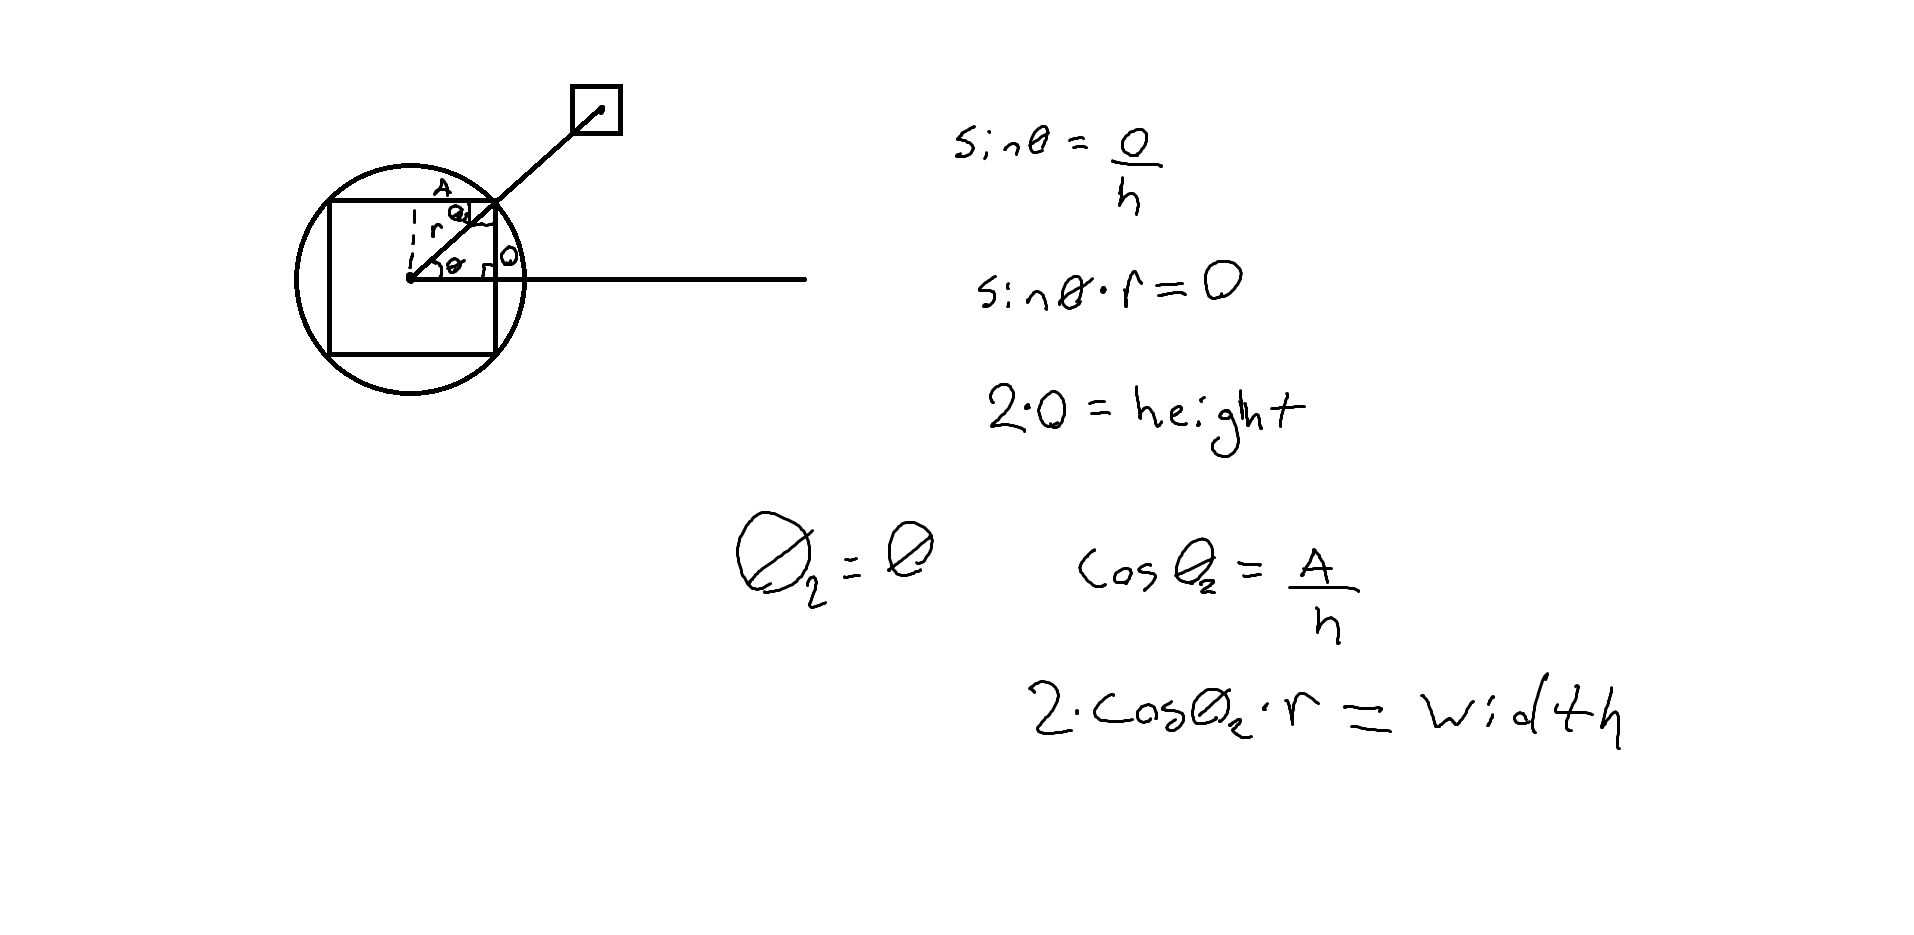 A
θ₂
r
θ
O
sinθ = O/h
sinθ·r = O
2·O = height
θ₂ = θ
cosθ₂ = A/h
2·cosθ₂·r = width